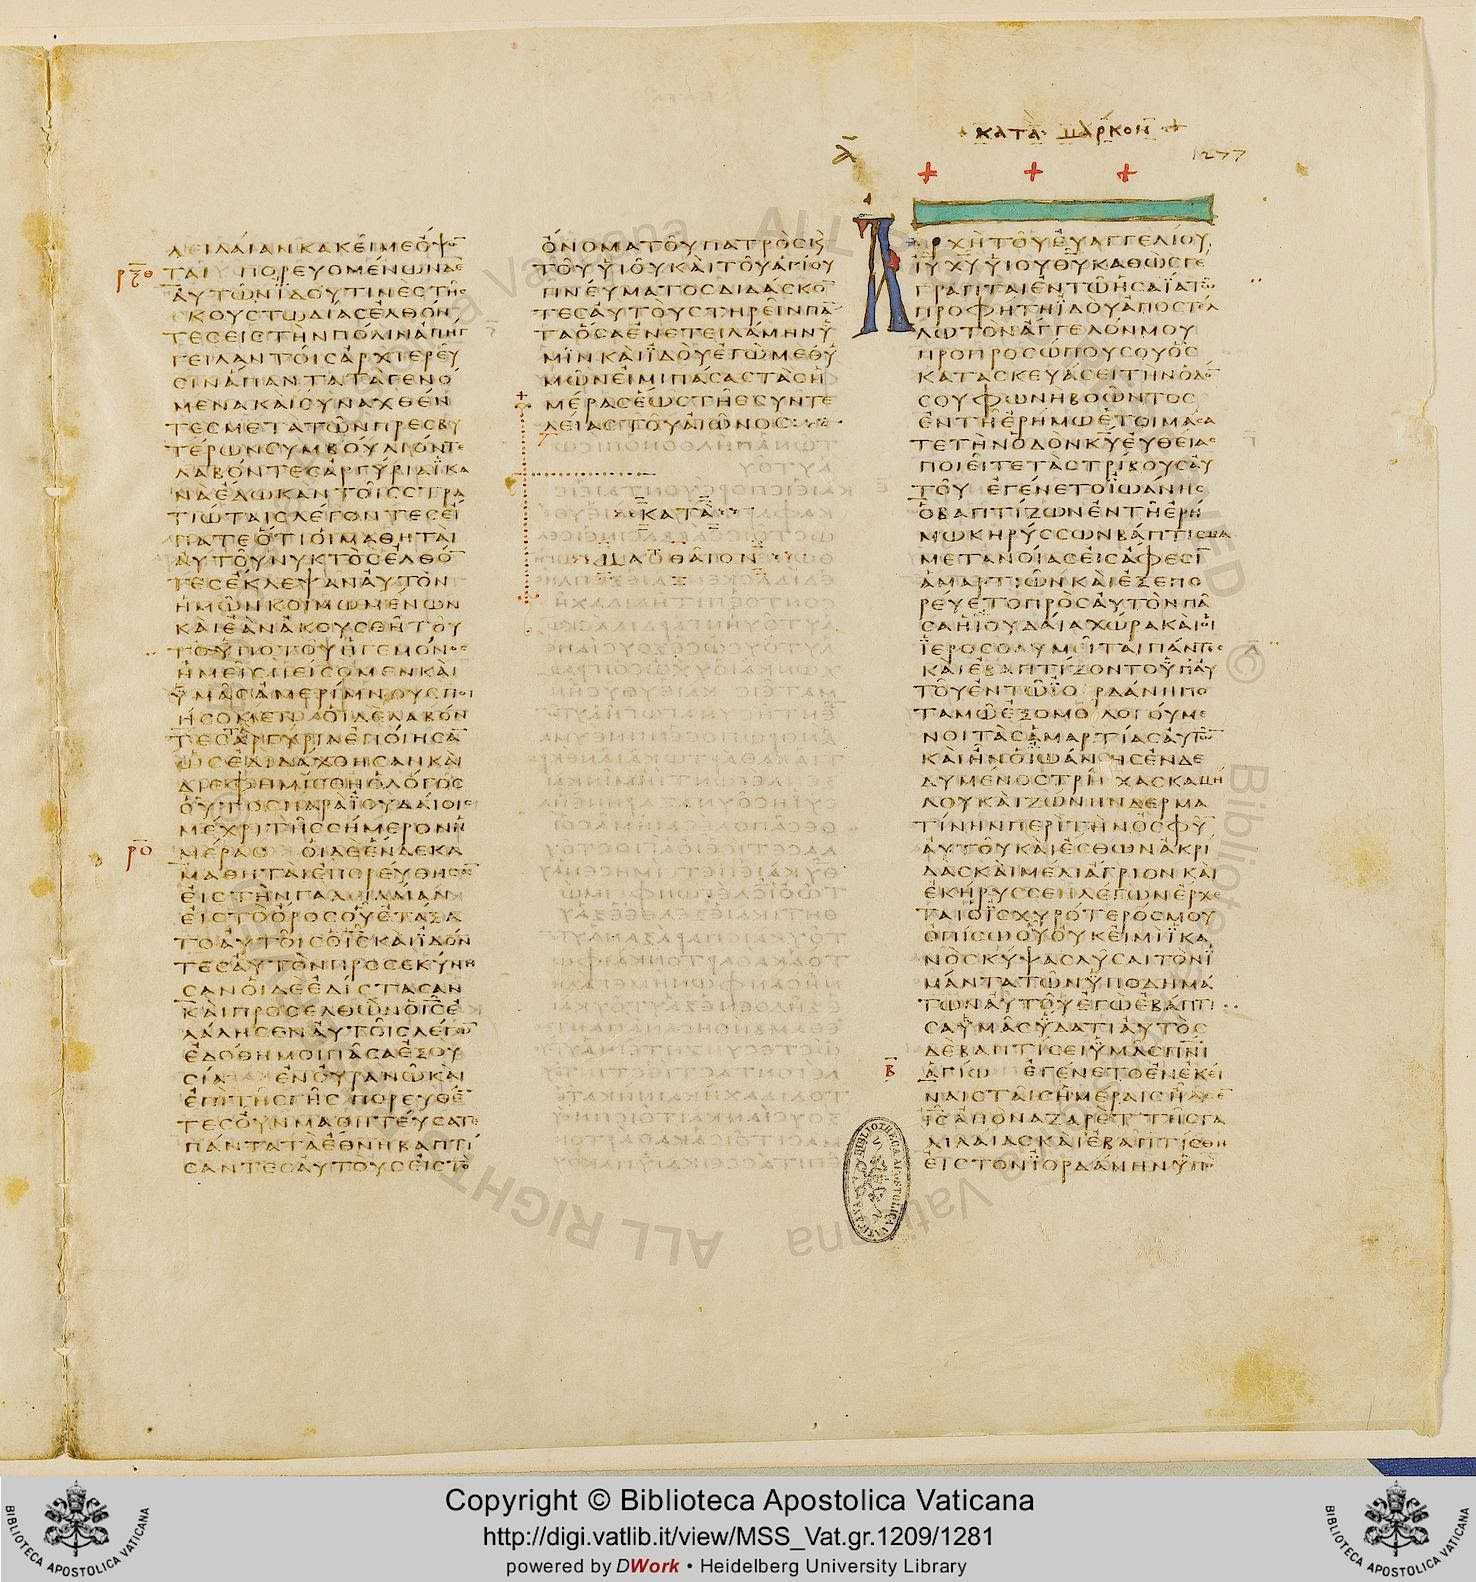 ΚΑΤΑ ΜΑΡΚΟΝ
1277
ΛΕΙΛΑΙΑΝΚΑΚΕΙΜΕΟΨΟ̅
ΤΑΙ ΠΟΡΕΥΟΜΕΝΩΝΔΕ
ΑΥΤΩΝΙΔΟΥΤΙΝΕΣΤΗΣ
ΚΟΥΣΤΩΔΙΑΣΕΛΘΟΝ
ΤΕΣΕΙΣΤΗΝΠΟΛΙΝΑΠΗΓ
ΓΕΙΛΑΝΤΟΙΣΑΡΧΙΕΡΕΥ
ΣΙΝΑΠΑΝΤΑΤΑΓΕΝΟ
ΜΕΝΑΚΑΙΣΥΝΑΧΘΕΝ
ΤΕΣΜΕΤΑΤΩΝΠΡΕΣΒΥ
ΤΕΡΩΝΣΥΜΒΟΥΛΙΟΝΤΕ
ΛΑΒΟΝΤΕΣΑΡΓΥΡΙΑΪΚΑ
ΝΑΕΔΩΚΑΝΤΟΙΣΣΤΡΑ
ΤΙΩΤΑΙΣΛΕΓΟΝΤΕΣΕΙ
ΠΑΤΕΟΤΙΟΙΜΑΘΗΤΑΙ
ΑΥΤΟΥΝΥΚΤΟΣΕΛΘΟ̅
ΤΕΣΕΚΛΕΨΑΝΑΥΤΟΝ
ΗΜΩΝΚΟΙΜΩΜΕΝΩΝ
ΚΑΙΕΑΝΑΚΟΥΣΘΗΤΟΥ
ΤΟΥΠΟΤΟΥΗΓΕΜΟΝΟΣ
ΗΜΕΙΣΠΕΙΣΟΜΕΝΚΑΙ
ΥΜΑΣΑΜΕΡΙΜΝΟΥΣΠΟΙ
ΗΣΟΜΕΝ ΟΙΔΕΛΑΒΟΝ
ΤΕΣΑΡΓΥΡΙΑΕΠΟΙΗΣΑ̅
ΩΣΕΔΙΔΑΧΘΗΣΑΝΚΑΙ
ΔΙΕΦΗΜΙΣΘΗΟΛΟΓΟΣ
ΟΥΤΟΣΠΑΡΑΪΟΥΔΑΙΟΙΣ
ΜΕΧΡΙΤΗΣΣΗΜΕΡΟΝΗ
ΜΕΡΑΣ ΟΙΔΕΕΝΔΕΚΑ
ΜΑΘΗΤΑΙΕΠΟΡΕΥΘΗΣΑ̅
ΕΙΣΤΗΝΓΑΛΕΙΛΑΙΑΝ
ΕΙΣΤΟΟΡΟΣΟΥΕΤΑΞΑ
ΤΟΑΥΤΟΙΣΟΙ̅Σ̅ΚΑΙΪΔΟΝ
ΤΕΣΑΥΤΟΝΠΡΟΣΕΚΥΝΗ
ΣΑΝΟΙΔΕΕΔΙΣΤΑΣΑΝ
ΚΑΙΠΡΟΣΕΛΘΩΝΟΙ̅Σ̅Ε
ΛΑΛΗΣΕΝΑΥΤΟΙΣΛΕΓΩ̅
ΕΔΟΘΗΜΟΙΠΑΣΑΕΞΟΥ
ΣΙΑ ΕΝΟΥΡΑΝΩΚΑΙ
ΕΠΙΤΗΣΓΗΣ ΠΟΡΕΥΘΕ̅
ΤΕΣΟΥΝΜΑΘΗΤΕΥΣΑΤΕ
ΠΑΝΤΑΤΑΕΘΝΗΒΑΠΤΙ
ΣΑΝΤΕΣΑΥΤΟΥΣΕΙΣΤΟ
ΟΝΟΜΑΤΟΥΠΑΤΡΟΣΚΑΙ
ΤΟΥΥΙΟΥΚΑΙΤΟΥΑΓΙΟΥ
ΠΝΕΥΜΑΤΟΣΔΙΔΑΣΚΟ̅
ΤΕΣΑΥΤΟΥΣΤΗΡΕΙΝΠΑ̅
ΤΑΟΣΑΕΝΕΤΕΙΛΑΜΗΝΥ
ΜΙΝΚΑΙΪΔΟΥΕΓΩΜΕΘΥ
ΜΩΝΕΙΜΙΠΑΣΑΣΤΑΣΗ
ΜΕΡΑΣΕΩΣΤΗΣΣΥΝΤΕ
ΛΕΙΑΣΤΟΥΑΙΩΝΟΣ
ΚΑΤΑ
ΜΑΘΘΑΙΟΝ
ΑΡΧΗΤΟΥΕΥΑΓΓΕΛΙΟΥ
Ι̅Υ̅Χ̅Υ̅ΥΙΟΥΘ̅Υ̅ΚΑΘΩΣΓΕ
ΓΡΑΠΤΑΙΕΝΤΩΗΣΑΪΑΤΩ
ΠΡΟΦΗΤΗΪΔΟΥΑΠΟΣΤΕΛ
ΛΩΤΟΝΑΓΓΕΛΟΝΜΟΥ
ΠΡΟΠΡΟΣΩΠΟΥΣΟΥΟΣ
ΚΑΤΑΣΚΕΥΑΣΕΙΤΗΝΟΔΟ̅
ΣΟΥΦΩΝΗΒΟΩΝΤΟΣ
ΕΝΤΗΕΡΗΜΩΕΤΟΙΜΑΣΑ
ΤΕΤΗΝΟΔΟΝΚ̅Υ̅ΕΥΘΕΙΑΣ
ΠΟΙΕΙΤΕΤΑΣΤΡΙΒΟΥΣΑΥ
ΤΟΥ ΕΓΕΝΕΤΟΪΩΑΝΗΣ
ΟΒΑΠΤΙΖΩΝΕΝΤΗΕΡΗ
ΜΩΚΗΡΥΣΣΩΝΒΑΠΤΙΣΜΑ
ΜΕΤΑΝΟΙΑΣΕΙΣΑΦΕΣΙ̅
ΑΜΑΡΤΙΩΝΚΑΙΕΞΕΠΟ
ΡΕΥΕΤΟΠΡΟΣΑΥΤΟΝΠΑ
ΣΑΗΪΟΥΔΑΙΑΧΩΡΑΚΑΙΟΙ
ΪΕΡΟΣΟΛΥΜΕΙΤΑΙΠΑΝΤΕΣ
ΚΑΙΕΒΑΠΤΙΖΟΝΤΟΥΠΑΥ
ΤΟΥΕΝΤΩΪΟΡΔΑΝΗΠΟ
ΤΑΜΩΕΞΟΜΟΛΟΓΟΥΜΕ
ΝΟΙΤΑΣΑΜΑΡΤΙΑΣΑΥΤΩ̅
ΚΑΙΗΝΟΪΩΑΝΗΣΕΝΔΕ
ΔΥΜΕΝΟΣΤΡΙΧΑΣΚΑΜΗ
ΛΟΥΚΑΙΖΩΝΗΝΔΕΡΜΑ
ΤΙΝΗΝΠΕΡΙΤΗΝΟΣΦΥ̅
ΑΥΤΟΥΚΑΙΕΣΘΩΝΑΚΡΙ
ΔΑΣΚΑΙΜΕΛΙΑΓΡΙΟΝΚΑΙ
ΕΚΗΡΥΣΣΕΝΛΕΓΩΝΕΡΧΕ
ΤΑΙΟΪΣΧΥΡΟΤΕΡΟΣΜΟΥ
ΟΠΙΣΩΟΥΟΥΚΕΙΜΙΪΚΑ
ΝΟΣΚΥΨΑΣΛΥΣΑΙΤΟΝΪ
ΜΑΝΤΑΤΩΝΥΠΟΔΗΜΑ
ΤΩΝΑΥΤΟΥΕΓΩΕΒΑΠΤΙ
ΣΑΥΜΑΣΥΔΑΤΙΑΥΤΟΣ
ΔΕΒΑΠΤΙΣΕΙΥΜΑΣΠ̅Ν̅Ι̅
ΑΓΙΩ ΕΓΕΝΕΤΟΕΝΕΚΕΙ
ΝΑΙΣΤΑΙΣΗΜΕΡΑΙΣΗΛΘΕ̅
Ι̅Σ̅ΑΠΟΝΑΖΑΡΕΤΤΗΣΓΑ
ΛΙΛΑΙΑΣΚΑΙΕΒΑΠΤΙΣΘΗ
ΕΙΣΤΟΝΪΟΡΔΑΝΗΝΥΠΟ
Copyright © Biblioteca Apostolica Vaticana
http://digi.vatlib.it/view/MSS_Vat.gr.1209/1281
powered by DWork • Heidelberg University Library
BIBLIOTECA APOSTOLICA VATICANA
BIBLIOTECA APOSTOLICA VATICANA